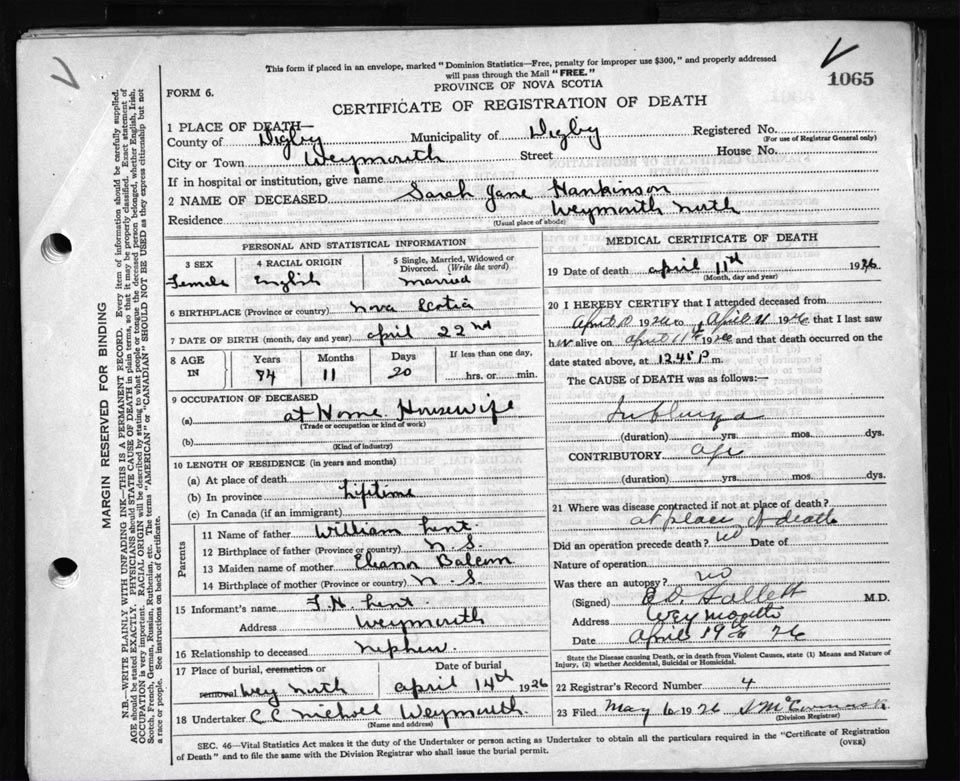 This form if placed in an envelope, marked "Dominion Statistics—Free, penalty for improper use $300," and properly addressed
will pass through the Mail "FREE."
1065
PROVINCE OF NOVA SCOTIA
FORM 6.
CERTIFICATE OF REGISTRATION OF DEATH
1 PLACE OF DEATH—
County of Digby Municipality of Digby Registered No.
(For use of Registrar General only)
City or Town Weymouth Street House No.
If in hospital or institution, give name
2 NAME OF DECEASED Sarah Jane Hankinson
Residence Weymouth North
(Usual place of abode)
PERSONAL AND STATISTICAL INFORMATION
3 SEX Female
4 RACIAL ORIGIN English
5 Single, Married, Widowed or Divorced. (Write the word) Married
6 BIRTHPLACE (Province or country) Nova Scotia
7 DATE OF BIRTH (month, day and year) April 22nd
8 AGE IN Years 84 Months 11 Days 20 If less than one day, hrs. or min.
9 OCCUPATION OF DECEASED
(a) at Home Housewife
(Trade or occupation or kind of work)
(b)
(Kind of industry)
10 LENGTH OF RESIDENCE (in years and months)
(a) At place of death
(b) In province Lifetime
(c) In Canada (if an immigrant)
Parents
11 Name of father William Lent.
12 Birthplace of father (Province or country) N.S.
13 Maiden name of mother Balcom
14 Birthplace of mother (Province or country) N.S.
15 Informant's name Lent.
Address Weymouth
16 Relationship to deceased nephew.
17 Place of burial, cremation or removal Wey North
Date of burial April 14th 1926
18 Undertaker C C Nicholl Weymouth.
(Name and address)
MEDICAL CERTIFICATE OF DEATH
19 Date of death April 11th 1926
(Month, day and year)
20 I HEREBY CERTIFY that I attended deceased from
April 1926 to April 11 1926 that I last saw
h er alive on April 11th 1926 and that death occurred on the
date stated above, at 12.45 P m.
The CAUSE of DEATH was as follows:—
Influenza
(duration) yrs. mos. dys.
CONTRIBUTORY age
(duration) yrs. mos. dys.
21 Where was disease contracted if not at place of death?
at place of death
Did an operation precede death? no Date of
Nature of operation
Was there an autopsy? no
(Signed) M.D.
Address Weymouth
Date April 19th 26
State the Disease causing Death, or in death from Violent Causes, state (1) Means and Nature of
Injury, (2) whether Accidental, Suicidal or Homicidal.
22 Registrar's Record Number 4
23 Filed May 6 1926 McCormack
(Division Registrar)
SEC. 46—Vital Statistics Act makes it the duty of the Undertaker or person acting as Undertaker to obtain all the particulars required in the "Certificate of Registration
of Death" and to file the same with the Division Registrar who shall issue the burial permit.
(OVER)
MARGIN RESERVED FOR BINDING
N.B.—WRITE PLAINLY WITH UNFADING INK—THIS IS A PERMANENT RECORD. Every item of information should be carefully supplied.
AGE should be stated EXACTLY. PHYSICIANS should STATE CAUSE OF DEATH in plain terms, so that it may be properly classified. Exact statement of
OCCUPATION is very important. RACIAL ORIGIN will be described by stating to what people or tongue the deceased person belonged, whether English, Irish,
Scotch, French, German, Russian, Ruthenian, etc. The terms "AMERICAN" or "CANADIAN" SHOULD NOT BE USED as they express citizenship but not
a race or people. See instructions on back of Certificate.